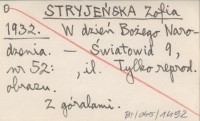 STRYJEŃSKA Zofia
1932. W dzień Bożego Naro-
dzenia. — Światowid 9,
nr 52: , il. Tylko reprod.
obrazu.
Z góralami.